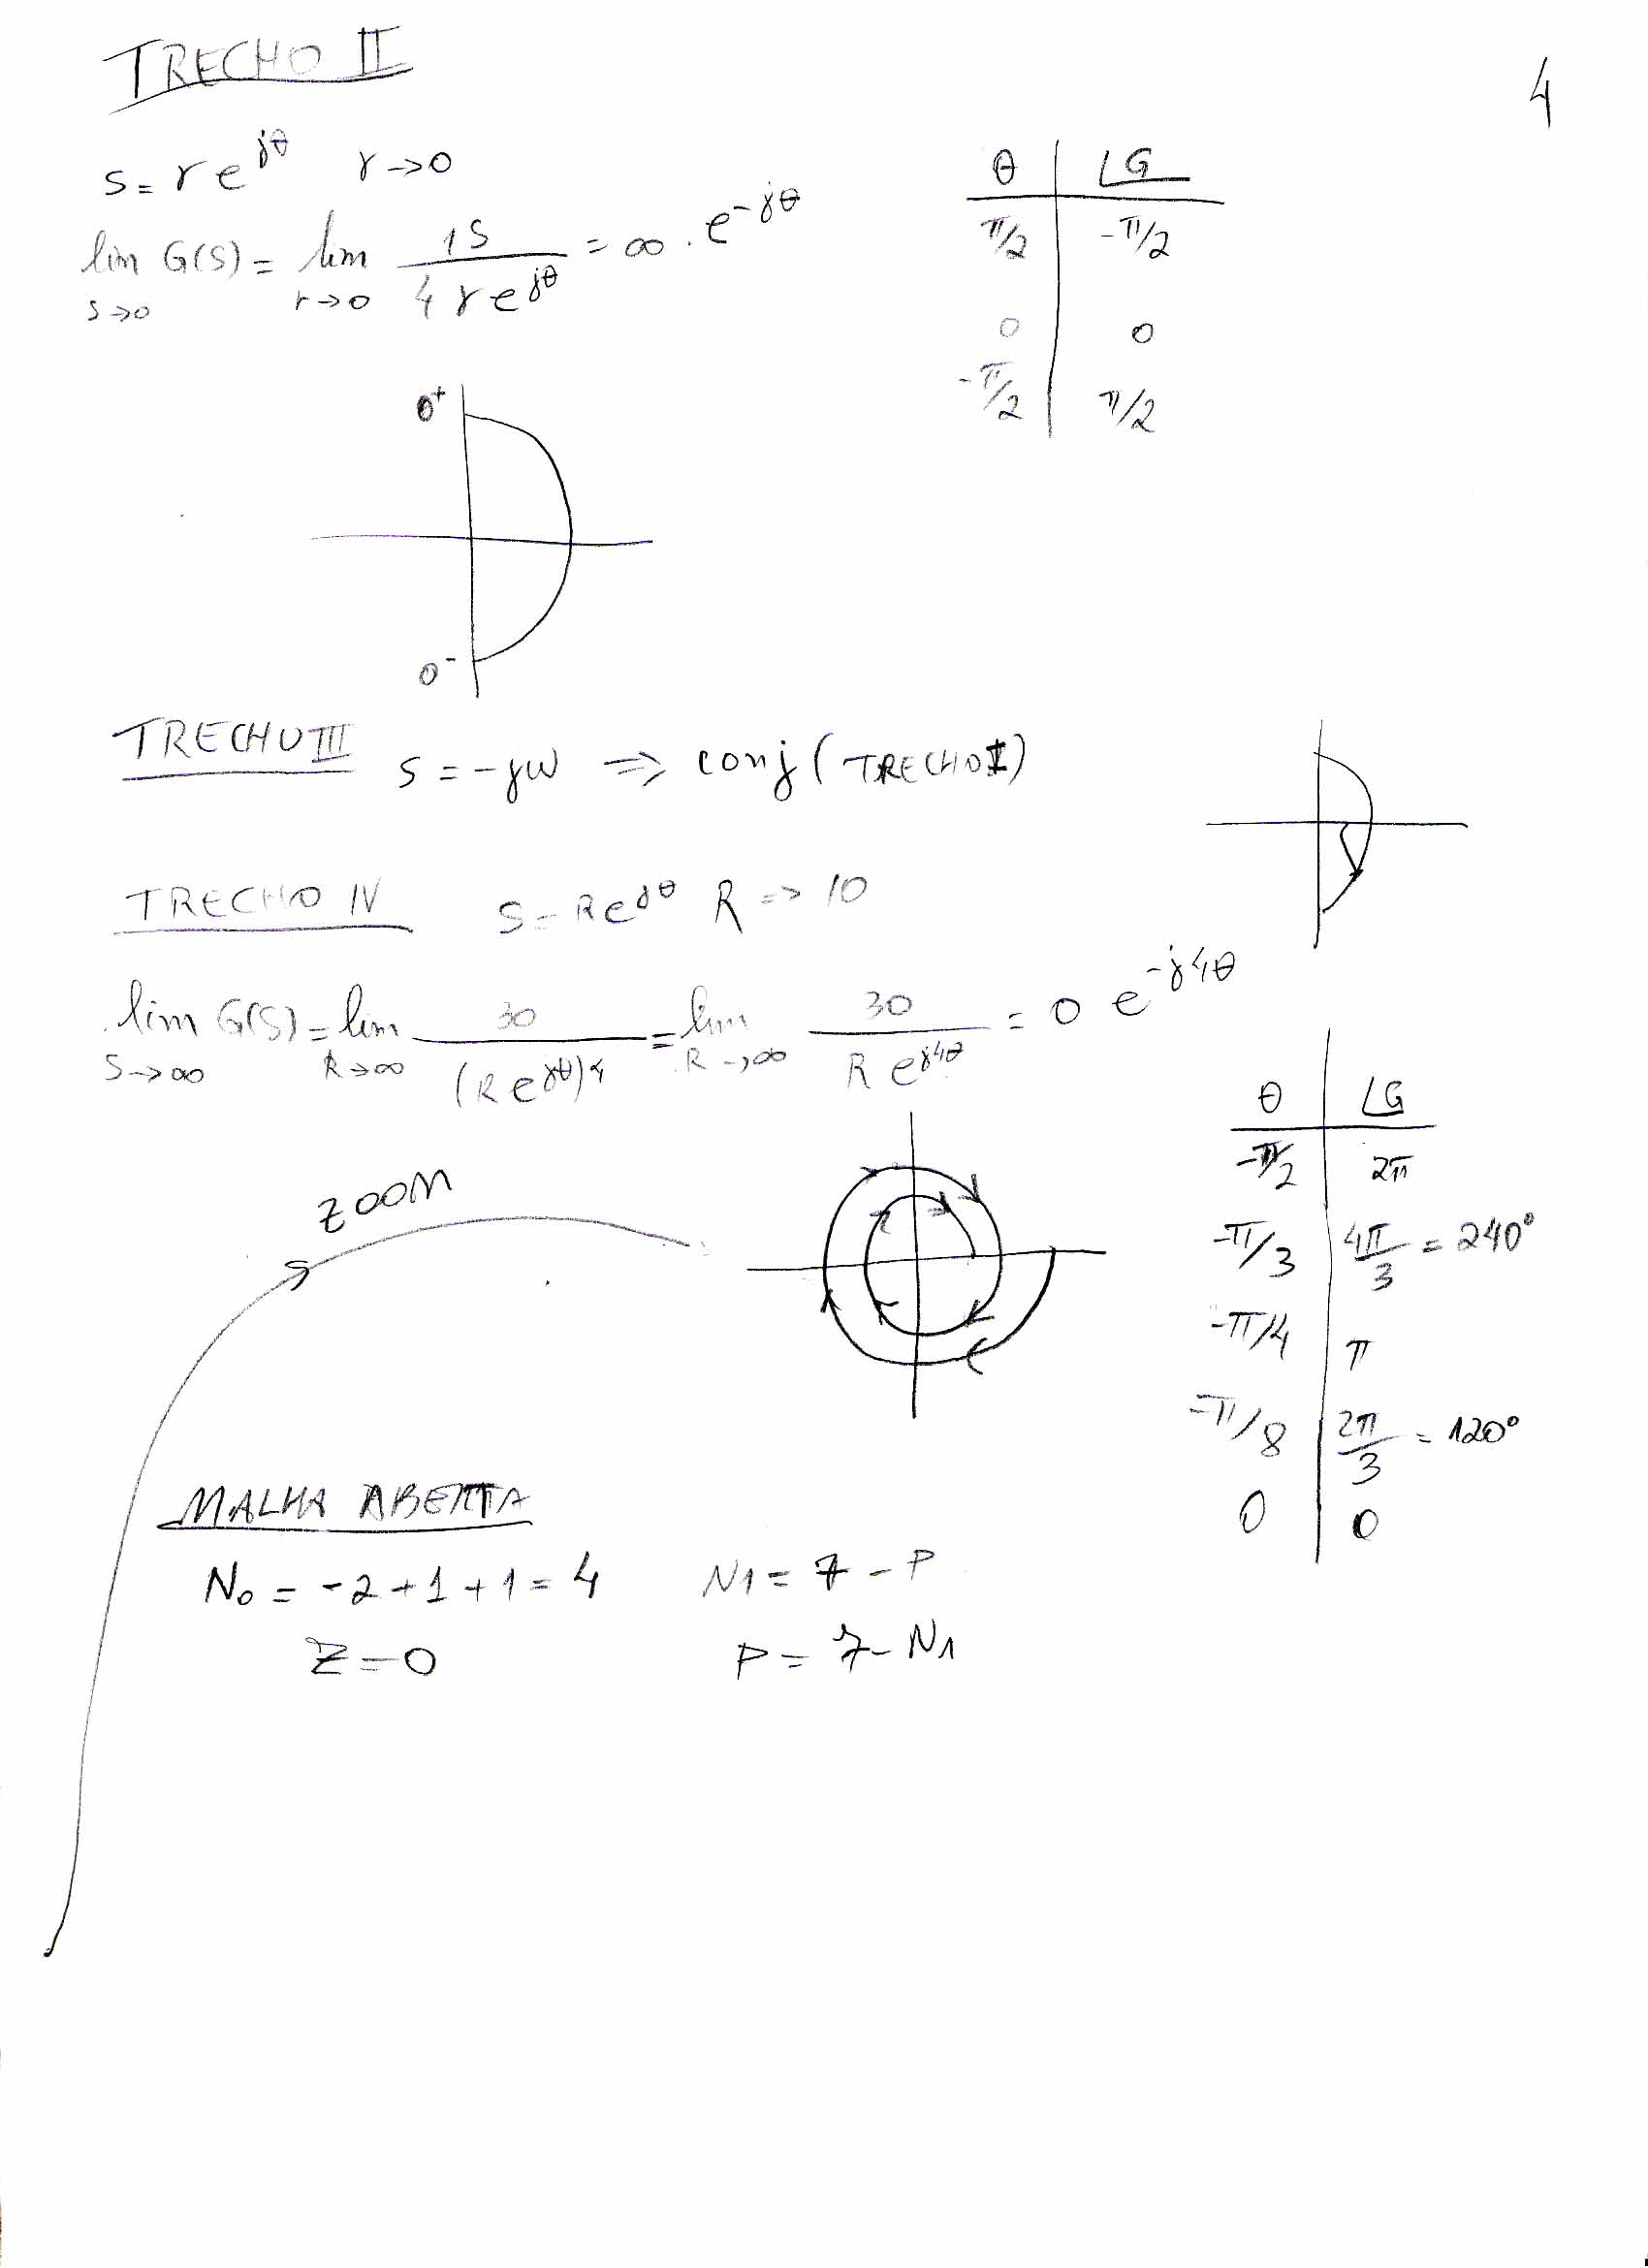 TRECHO II
4
s = r e^{jθ} r → 0
lim_{s→0} G(s) = lim_{r→0} 15 / (4 r e^{jθ}) = ∞ . e^{-jθ}
θ | ∠G
π/2 | -π/2
0 | 0
-π/2 | π/2
0+
0-
TRECHO III s = -jω ⇒ conj (TRECHO I)
TRECHO IV S = R e^{jθ} R => 10
lim_{s→∞} G(s) = lim_{R→∞} 30 / (R e^{jθ})^4 = lim_{R→∞} 30 / (R e^{j4θ}) = 0 e^{-j4θ}
θ | ∠G
-π/2 | 2π
-π/3 | 4π/3 = 240°
-π/4 | π
-π/8 | 2π/3 = 120°
0 | 0
ZOOM
MALHA ABERTA
N0 = -2 + 1 + 1 = 4 N1 = Z - P
Z = 0 P = Z - N1